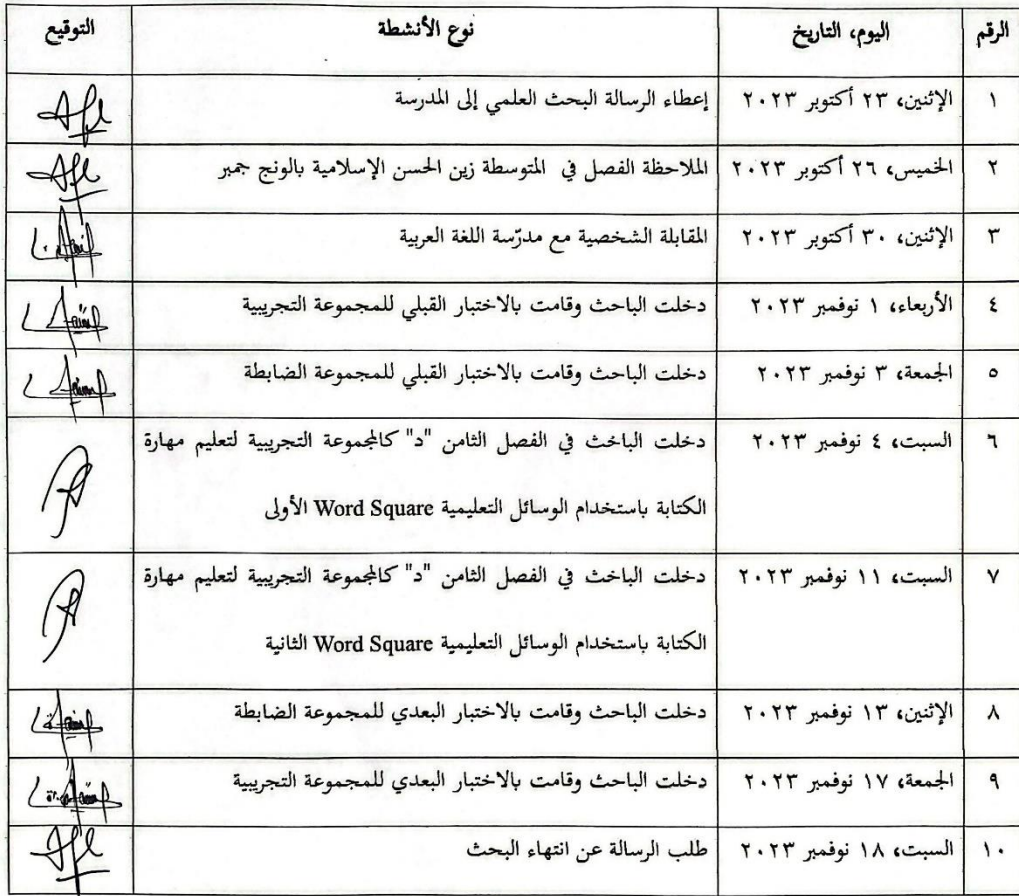 الرقم اليوم، التاريخ نوع الأنشطة التوقيع
١ الإثنين، ٢٣ أكتوبر ٢٠٢٣ إعطاء الرسالة البحث العلمي إلى المدرسة
٢ الخميس، ٢٦ أكتوبر ٢٠٢٣ الملاحظة الفصل في المتوسطة زين الحسن الإسلامية بالونج جمبر
٣ الإثنين، ٣٠ أكتوبر ٢٠٢٣ المقابلة الشخصية مع مدرّسة اللغة العربية
٤ الأربعاء، ١ نوفمبر ٢٠٢٣ دخلت الباحث وقامت بالاختبار القبلي للمجموعة التجريبية
٥ الجمعة، ٣ نوفمبر ٢٠٢٣ دخلت الباحث وقامت بالاختبار القبلي للمجموعة الضابطة
٦ السبت، ٤ نوفمبر ٢٠٢٣ دخلت الباخث في الفصل الثامن "د" كالمجموعة التجريبية لتعليم مهارة
الكتابة باستخدام الوسائل التعليمية Word Square الأولى
٧ السبت، ١١ نوفمبر ٢٠٢٣ دخلت الباخث في الفصل الثامن "د" كالمجموعة التجريبية لتعليم مهارة
الكتابة باستخدام الوسائل التعليمية Word Square الثانية
٨ الإثنين، ١٣ نوفمبر ٢٠٢٣ دخلت الباحث وقامت بالاختبار البعدي للمجموعة الضابطة
٩ الجمعة، ١٧ نوفمبر ٢٠٢٣ دخلت الباحث وقامت بالاختبار البعدي للمجموعة التجريبية
١٠ السبت، ١٨ نوفمبر ٢٠٢٣ طلب الرسالة عن انتهاء البحث